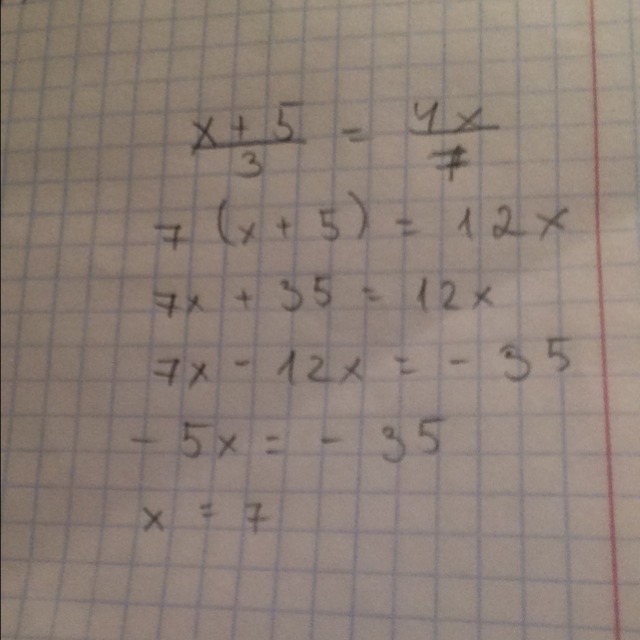 x + 5 / 3 = 4x / 7
7 (x + 5) = 12x
7x + 35 = 12x
7x - 12x = - 35
- 5x = - 35
x = 7